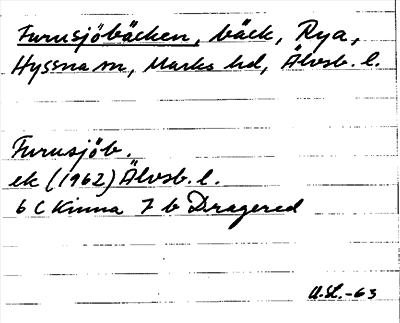 Furusjöbäcken, bäck, Rya,
Hyssna sn, Marks hd, Älvsb. l.
Furusjöb.
ek (1962) Älvsb. l.
6 C Kinna 7 b Dragered
U.SL.-63